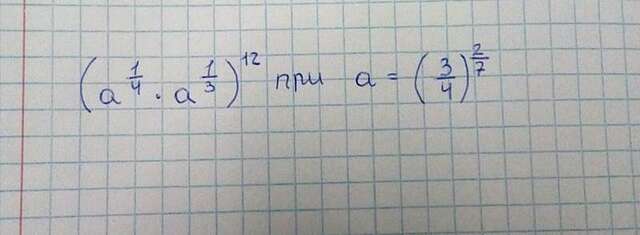 (a^{1/4} · a^{1/3})^{12} при a = (3/4)^{2/7}